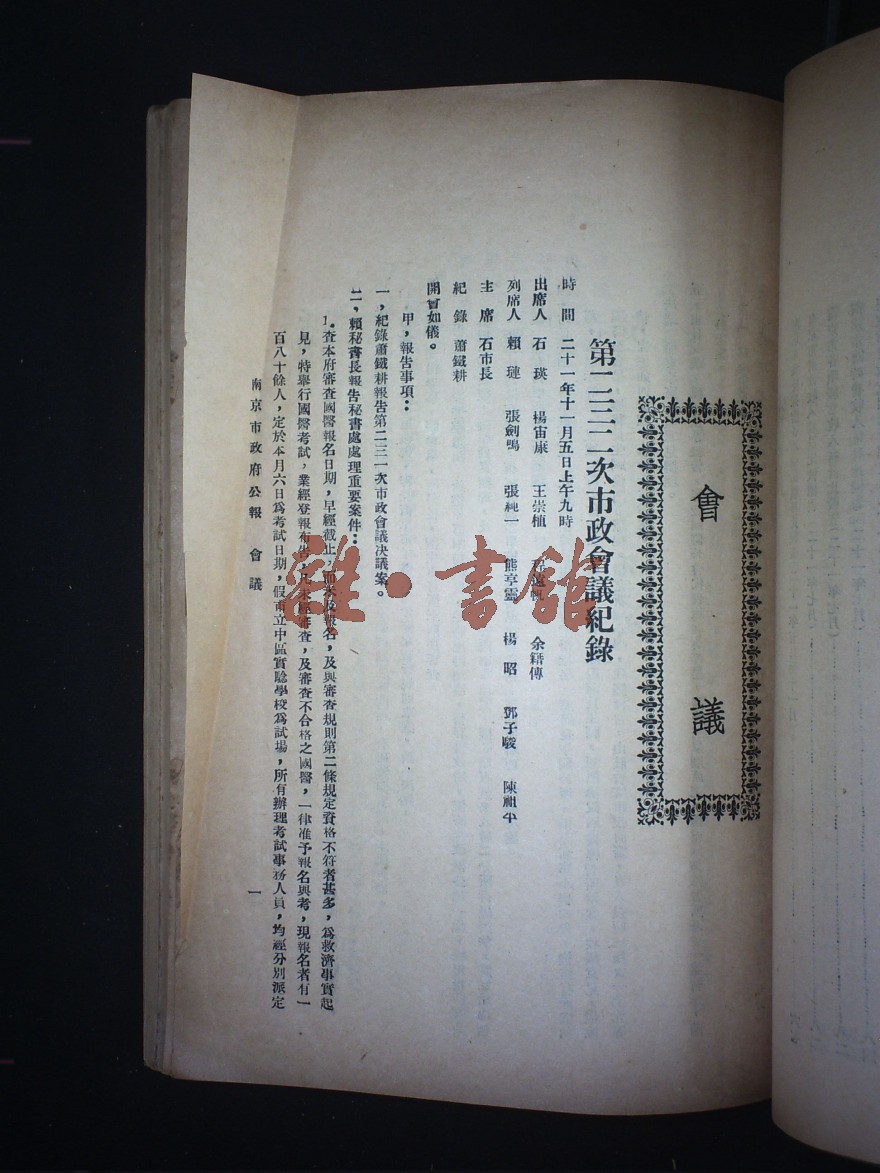 會議
第二三二次市政會議紀錄
時間 二十一年十一月五日上午九時
出席人 石瑛 楊宙康 王崇植 遠帆 余籍傳
列席人 賴璉 張劍鳴 張純一 熊亨靈 楊昭 鄧子駿 陳祖平
主席 石市長
紀錄 蕭鐵耕
開會如儀。
甲，報告事項：
一，紀錄蕭鐵耕報告第二三一次市政會議决議案。
二，賴秘書長報告秘書處處理重要案件：
1。查本府審查國醫報名日期，早經截止，而未及報名，及與審查規則第二條規定資格不符者甚多，為救濟事實起
見，特舉行國醫考試，業經登報布告，凡未經審查，及審查不合格之國醫，一律准予報名與考，現報名者有一
百八十餘人，定於本月六日為考試日期，假市立中區實驗學校為試場，所有辦理考試事務人員，均經分別派定
南京市政府公報 會議 一
雜·書館